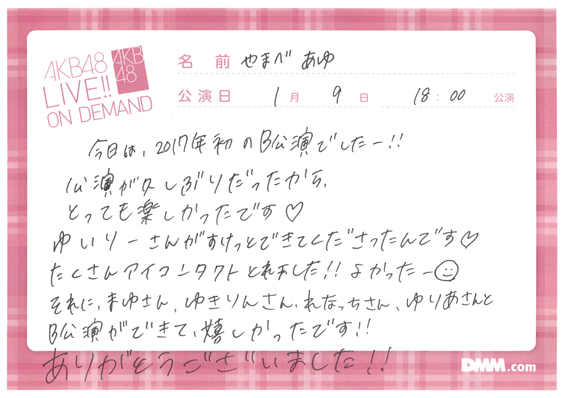 AKB48
LIVE!!
ON DEMAND
AKB
48
名 前 やまべ あゆ
公演日 1月 9日 18:00 公演
今日は、2017年初のB公演でしたー!!
公演が久しぶりだったから、
とっても楽しかったです♡
ゆいりーさんがすけっとできてくださったんです♡
たくさんアイコンタクトとれました!! よかったー☺
それに、まゆさん、ゆきりんさん、れなっちさん、ゆりあさんと
B公演ができて、嬉しかったです!!
ありがとうございました!!
DMM.com